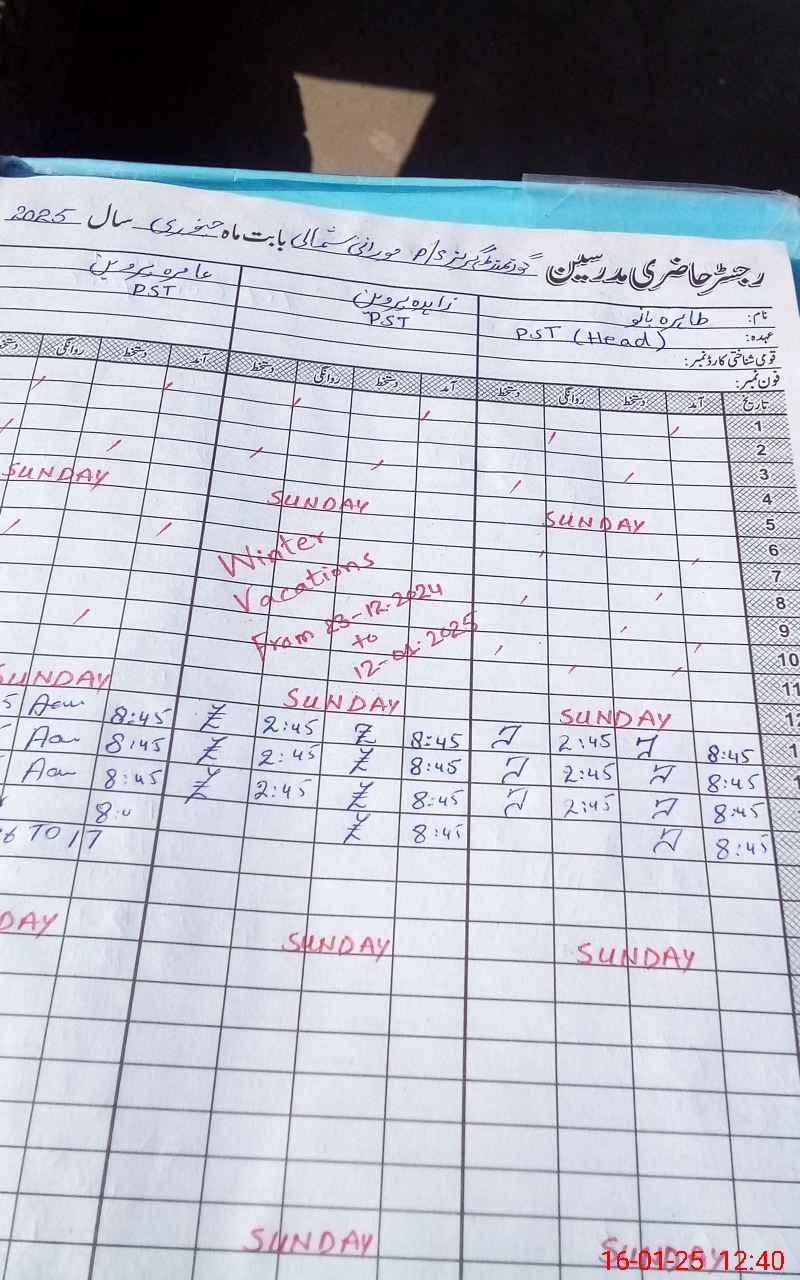 رجسٹر حاضری مدرسین گورنمنٹ گرلز P/S مورانی شمالی بابت ماہ جنوری سال 2025
نام: طاہرہ بانو زاہدہ پروین عامرہ پروین
عہدہ: PST (Head) PST PST
قومی شناختی کارڈ نمبر:
فون نمبر:
تاریخ آمد دستخط روانگی دستخط آمد دستخط روانگی دستخط آمد دستخط روانگی
1
2
3
4
5 SUNDAY SUNDAY SUNDAY
6
7
8
9
10
11
Winter
Vacations
From 23-12-2024
to
12-01-2025
12 SUNDAY SUNDAY SUNDAY
8:45 2:45 8:45 2:45 8:45
8:45 2:45 8:45 2:45 8:45
8:45 2:45 8:45 2:45 8:45
8:45 8:45
TO 17
SUNDAY SUNDAY
SUNDAY SUNDAY
16-01-25 12:40